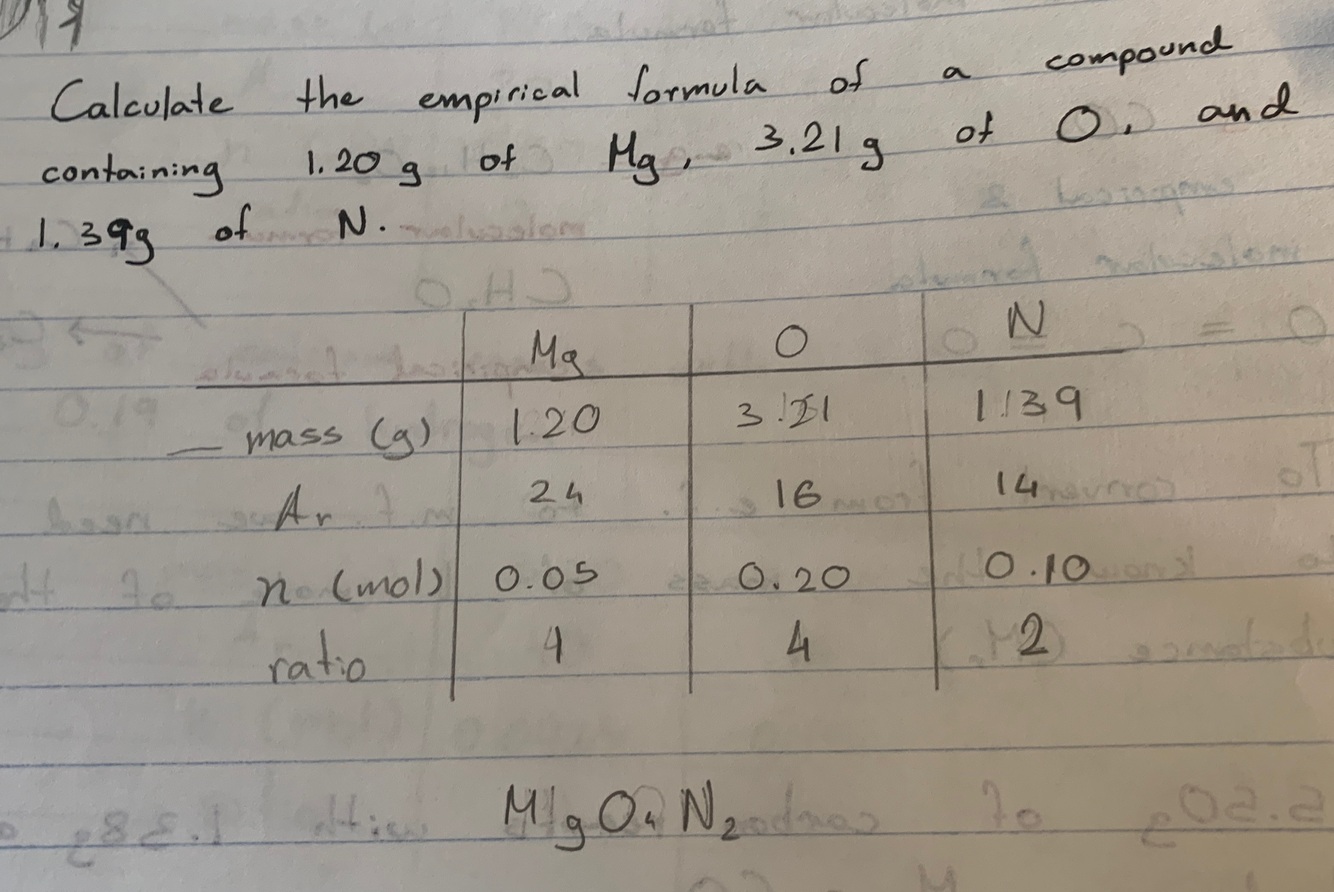 Calculate the empirical formula of a compound
containing 1.20 g of Mg, 3.21 g of O, and
1.39g of N.
Mg O N
mass (g) 1.20 3.21 1.39
Ar 24 16 14
n (mol) 0.05 0.20 0.10
ratio 1 4 2
MgO4N2